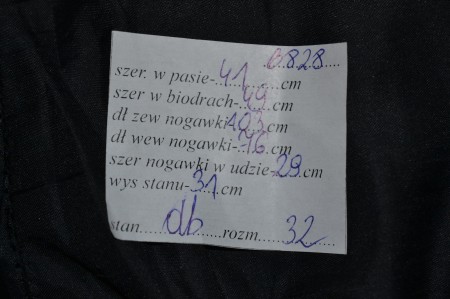 C828
szer. w pasie-41cm
szer w biodrach-49cm
dł zew nogawki103cm
dł wew nogawki-76cm
szer nogawki w udzie-29cm
wys stanu-31cm
stan......db......rozm......32